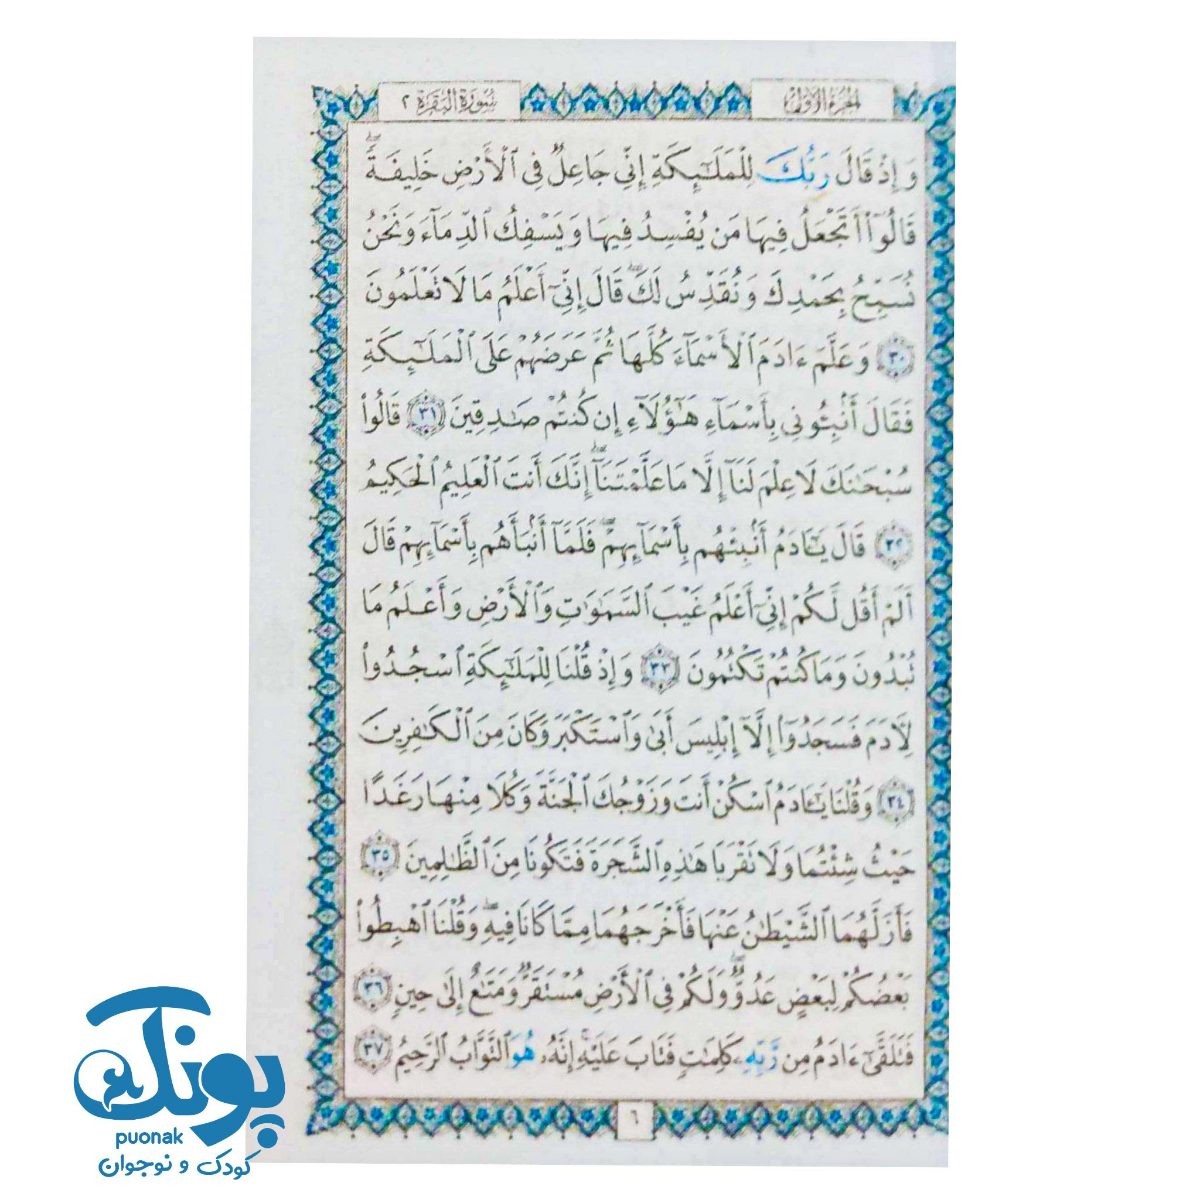 الجزء الأول
سورة البقرة ٢
وَإِذْ قَالَ رَبُّكَ لِلْمَلَٰٓئِكَةِ إِنِّى جَاعِلٌ فِى ٱلْأَرْضِ خَلِيفَةًۖ
قَالُوٓا۟ أَتَجْعَلُ فِيهَا مَن يُفْسِدُ فِيهَا وَيَسْفِكُ ٱلدِّمَآءَ وَنَحْنُ
نُسَبِّحُ بِحَمْدِكَ وَنُقَدِّسُ لَكَۖ قَالَ إِنِّىٓ أَعْلَمُ مَا لَا تَعْلَمُونَ
٣٠ وَعَلَّمَ ءَادَمَ ٱلْأَسْمَآءَ كُلَّهَا ثُمَّ عَرَضَهُمْ عَلَى ٱلْمَلَٰٓئِكَةِ
فَقَالَ أَنۢبِـُٔونِى بِأَسْمَآءِ هَٰٓؤُلَآءِ إِن كُنتُمْ صَٰدِقِينَ ٣١ قَالُوا۟
سُبْحَٰنَكَ لَا عِلْمَ لَنَآ إِلَّا مَا عَلَّمْتَنَآۖ إِنَّكَ أَنتَ ٱلْعَلِيمُ ٱلْحَكِيمُ
٣٢ قَالَ يَٰٓـَٔادَمُ أَنۢبِئْهُم بِأَسْمَآئِهِمْۖ فَلَمَّآ أَنۢبَأَهُم بِأَسْمَآئِهِمْ قَالَ
أَلَمْ أَقُل لَّكُمْ إِنِّىٓ أَعْلَمُ غَيْبَ ٱلسَّمَٰوَٰتِ وَٱلْأَرْضِ وَأَعْلَمُ مَا
تُبْدُونَ وَمَا كُنتُمْ تَكْتُمُونَ ٣٣ وَإِذْ قُلْنَا لِلْمَلَٰٓئِكَةِ ٱسْجُدُوا۟
لِـَٔادَمَ فَسَجَدُوٓا۟ إِلَّآ إِبْلِيسَ أَبَىٰ وَٱسْتَكْبَرَ وَكَانَ مِنَ ٱلْكَٰفِرِينَ
٣٤ وَقُلْنَا يَٰٓـَٔادَمُ ٱسْكُنْ أَنتَ وَزَوْجُكَ ٱلْجَنَّةَ وَكُلَا مِنْهَا رَغَدًا
حَيْثُ شِئْتُمَا وَلَا تَقْرَبَا هَٰذِهِ ٱلشَّجَرَةَ فَتَكُونَا مِنَ ٱلظَّٰلِمِينَ ٣٥
فَأَزَلَّهُمَا ٱلشَّيْطَٰنُ عَنْهَا فَأَخْرَجَهُمَا مِمَّا كَانَا فِيهِۖ وَقُلْنَا ٱهْبِطُوا۟
بَعْضُكُمْ لِبَعْضٍ عَدُوٌّۖ وَلَكُمْ فِى ٱلْأَرْضِ مُسْتَقَرٌّ وَمَتَٰعٌ إِلَىٰ حِينٍ ٣٦
فَتَلَقَّىٰٓ ءَادَمُ مِن رَّبِّهِۦ كَلِمَٰتٍ فَتَابَ عَلَيْهِۚ إِنَّهُۥ هُوَ ٱلتَّوَّابُ ٱلرَّحِيمُ ٣٧
٦
پونک
puonak
کودک و نوجوان